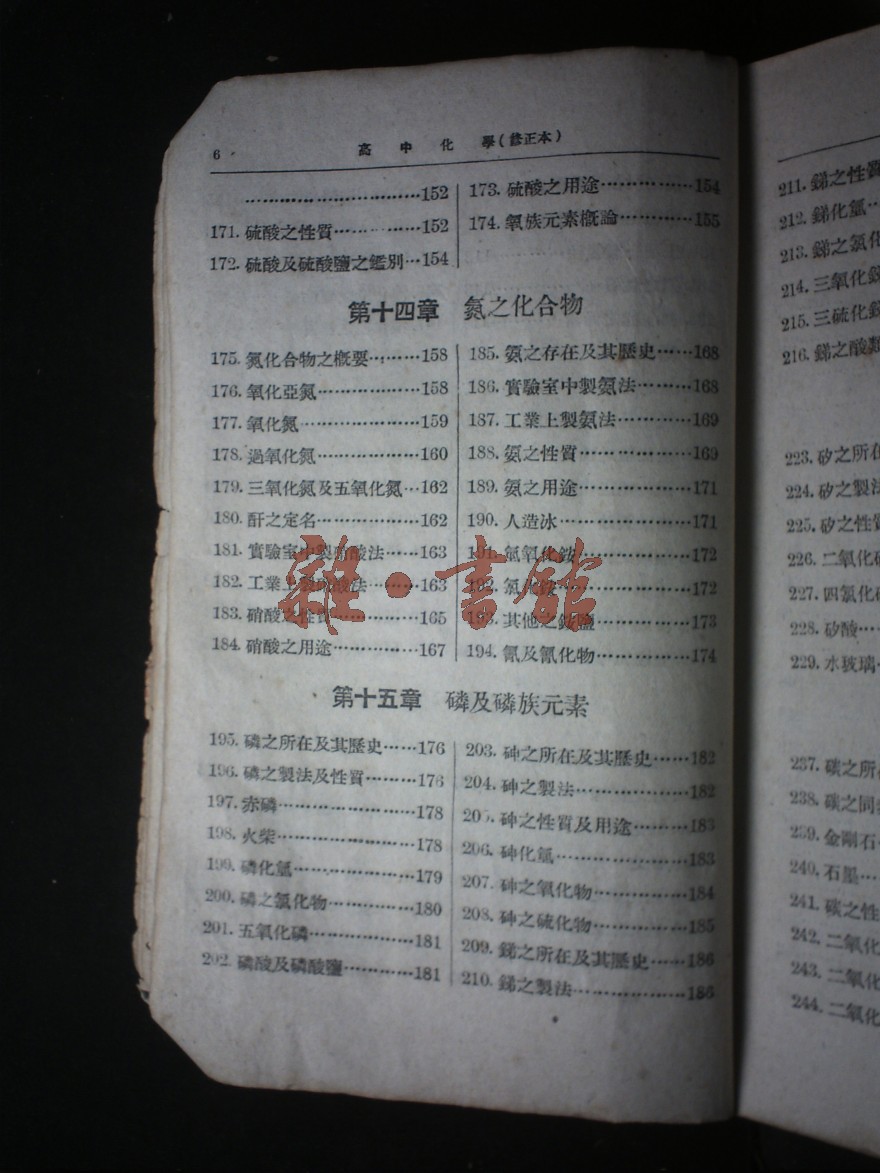 6 高中化學(修正本)
……………………………152
171. 硫酸之性質……………152
172. 硫酸及硫酸鹽之鑑別…154
173. 硫酸之用途……………154
174. 氧族元素概論…………155
第十四章 氮之化合物
175. 氮化合物之概要………158
176. 氧化亞氮………………158
177. 氧化氮…………………159
178. 過氧化氮………………160
179. 三氧化氮及五氧化氮…162
180. 酐之定名………………162
181. 實驗室中製硝酸法……163
182. 工業上製硝酸法………163
183. 硝酸之性質……………165
184. 硝酸之用途……………167
185. 氨之存在及其歷史……168
186. 實驗室中製氨法………168
187. 工業上製氨法…………169
188. 氨之性質………………169
189. 氨之用途………………171
190. 人造冰…………………171
191. 氫氧化銨………………172
192. 氯化銨…………………172
193. 其他之銨鹽……………173
194. 氰及氰化物……………174
第十五章 磷及磷族元素
195. 磷之所在及其歷史……176
196. 磷之製法及性質………176
197. 赤磷……………………178
198. 火柴……………………178
199. 磷化氫…………………179
200. 磷之氯化物……………180
201. 五氧化磷………………181
202. 磷酸及磷酸鹽…………181
203. 砷之所在及其歷史……182
204. 砷之製法………………182
205. 砷之性質及用途………183
206. 砷化氫…………………183
207. 砷之氧化物……………184
208. 砷之硫化物……………185
209. 銻之所在及其歷史……186
210. 銻之製法………………186
211. 銻之性質
212. 銻化氫…
213. 銻之氯化
214. 三氧化銻
215. 三硫化銻
216. 銻之酸類
223. 矽之所在
224. 矽之製法
225. 矽之性質
226. 二氧化矽
227. 四氯化矽
228. 矽酸……
229. 水玻璃…
237. 碳之所
238. 碳之同
239. 金剛石…
240. 石墨…
241. 碳之性
242. 二氧化
243. 二氧化
244. 二氧化
雜·書館